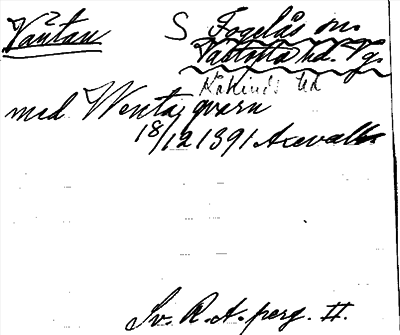 2
Vantan S Fogelås sn.
Vartofta hd. Vg.
Kåkinds hd
med Wentaqvarn
18/12 1391 Axevalla
Sv. R. A. perg. II.